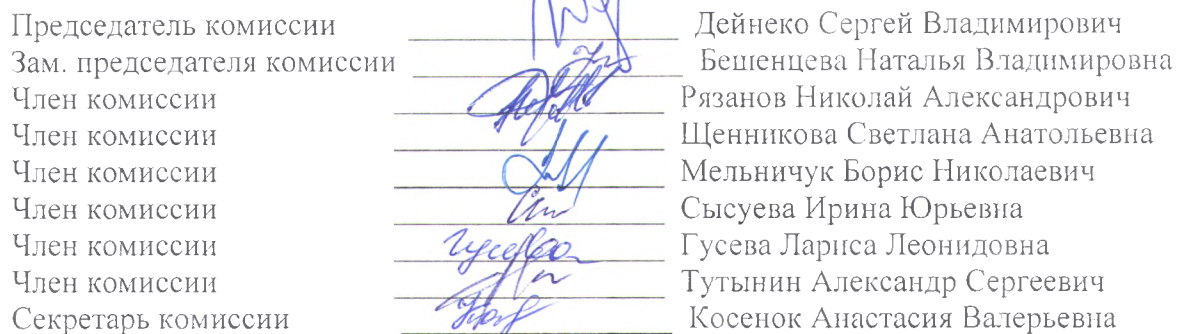 Председатель комиссии Дейнеко Сергей Владимирович
Зам. председателя комиссии Бешенцева Наталья Владимировна
Член комиссии Рязанов Николай Александрович
Член комиссии Щенникова Светлана Анатольевна
Член комиссии Мельничук Борис Николаевич
Член комиссии Сысуева Ирина Юрьевна
Член комиссии Гусева Лариса Леонидовна
Член комиссии Тутынин Александр Сергеевич
Секретарь комиссии Косенок Анастасия Валерьевна